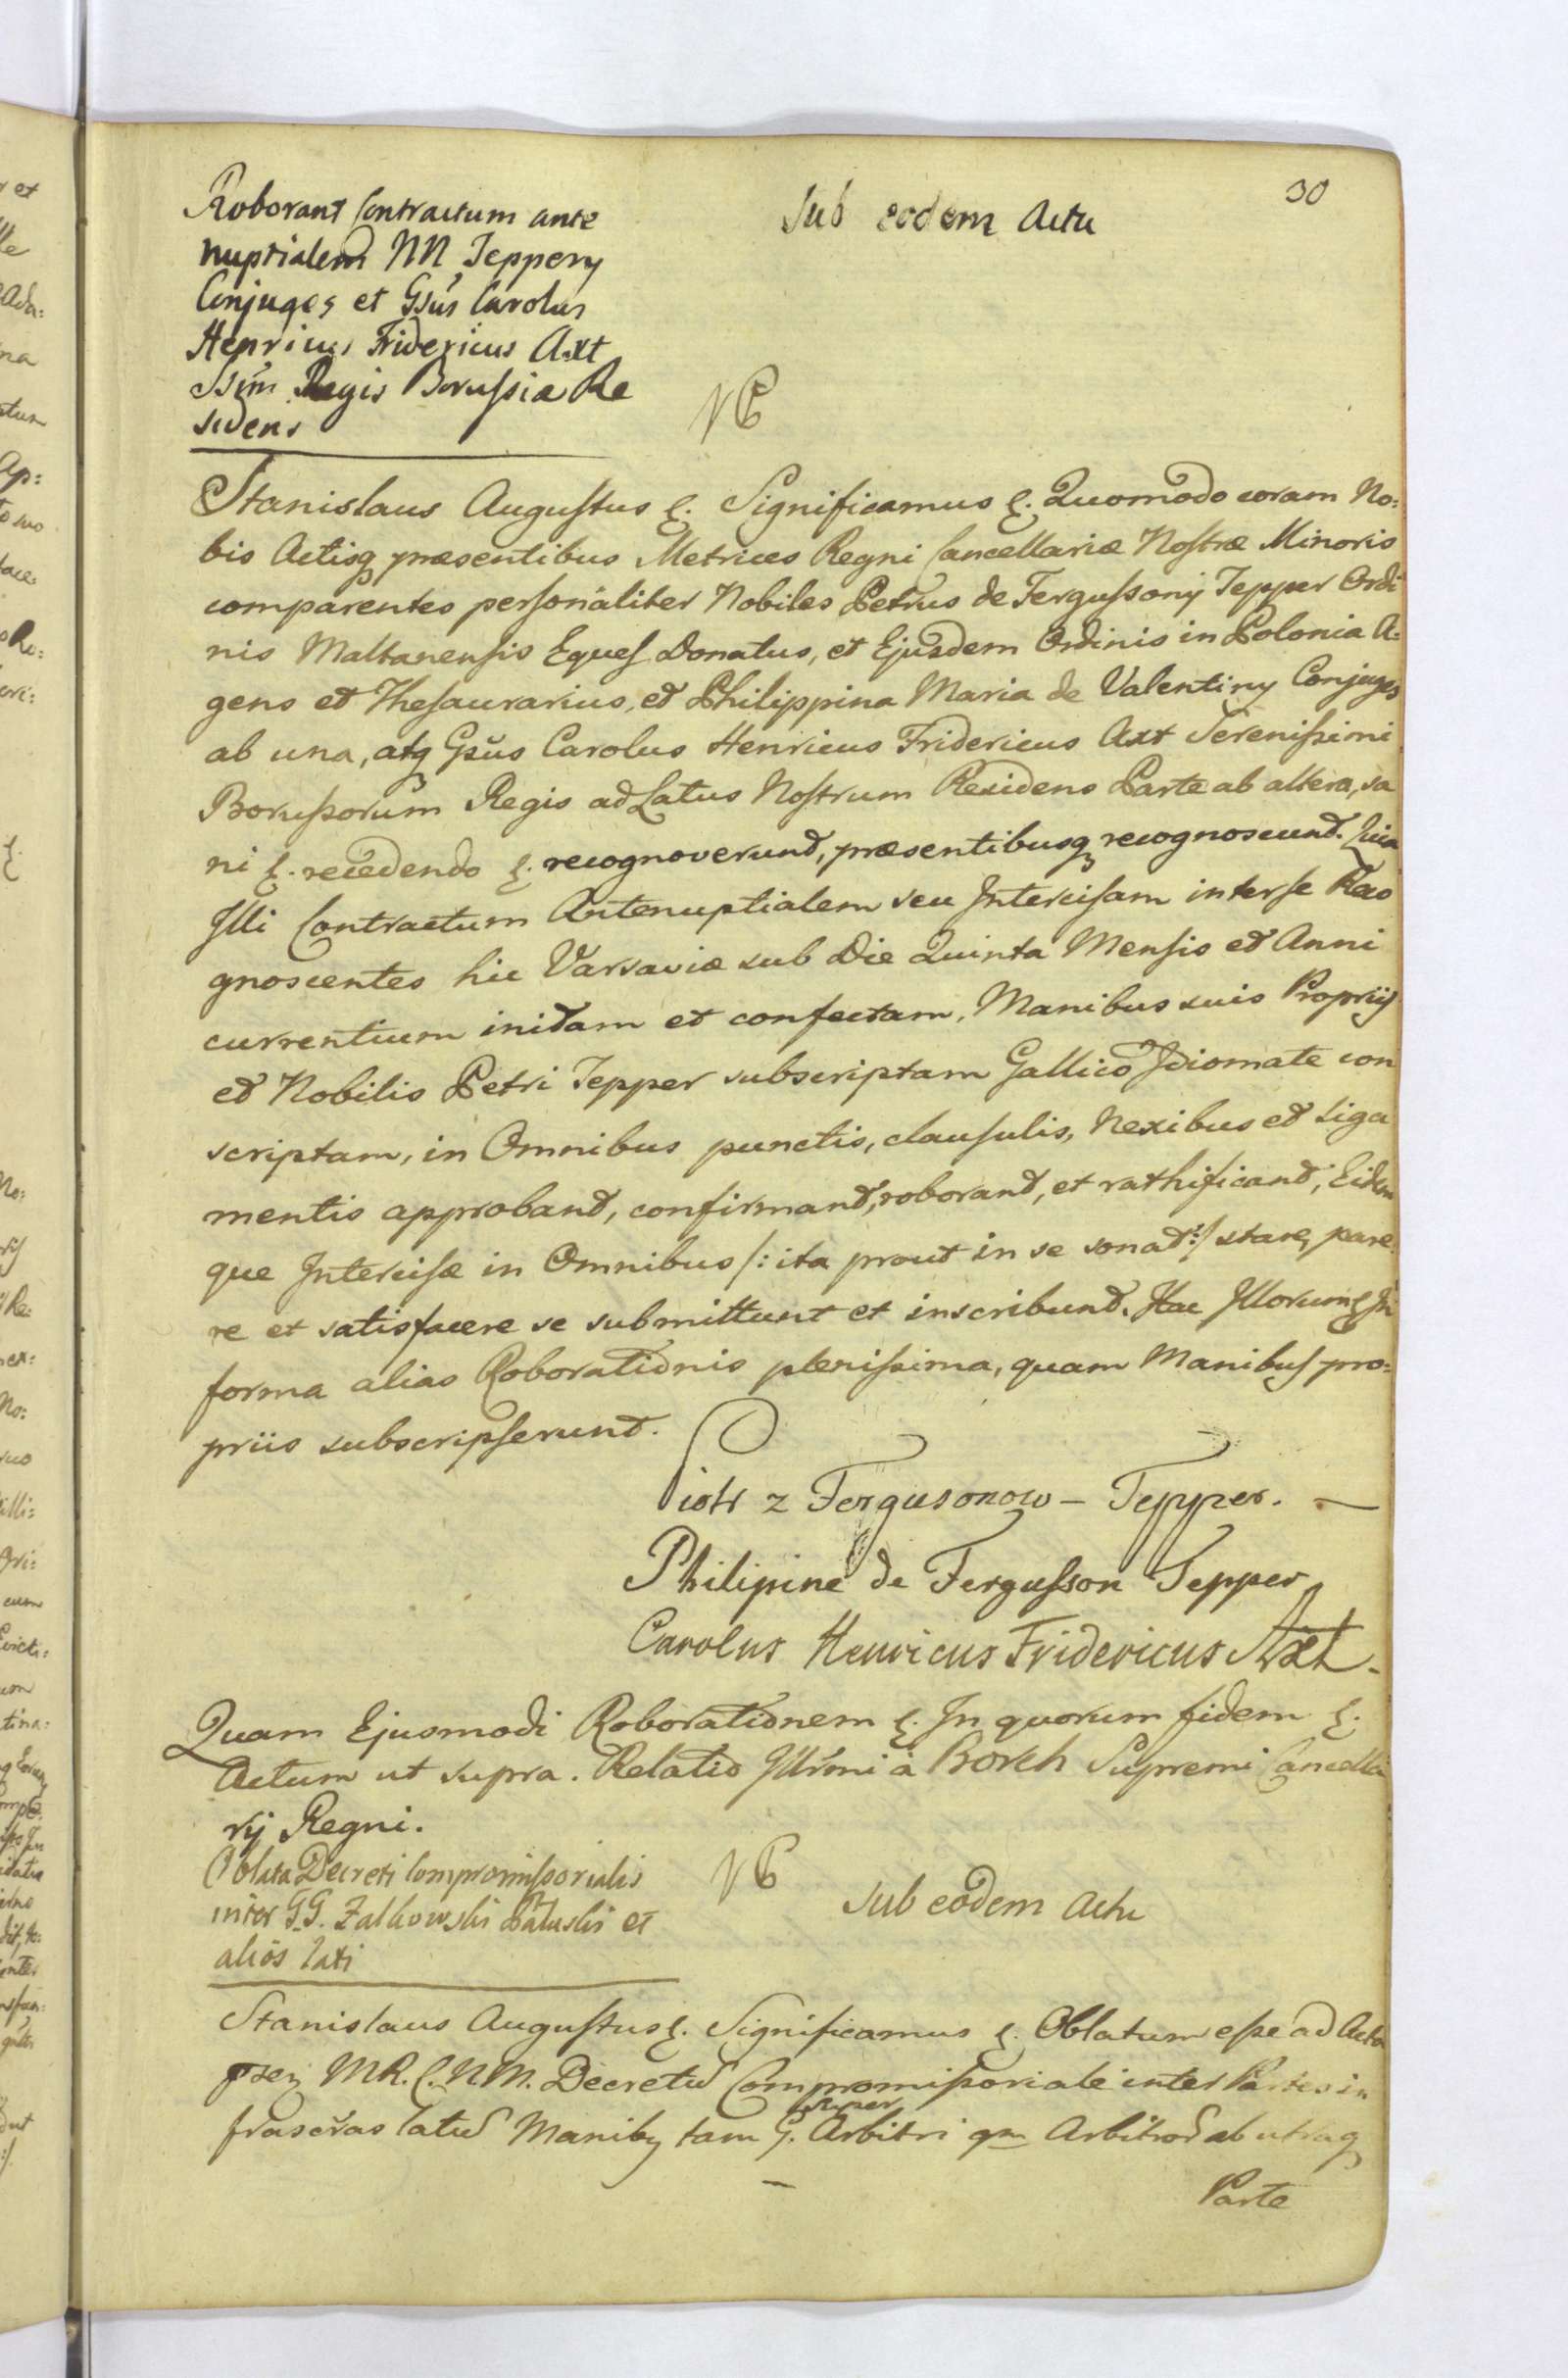 30
Roborant Contractum ante
nuptialem NN Teppery
Conjuges et Gsus Carolus
Henricus Fridericus Axt
Ssimi Regis Borussiæ Re
sidens
Sub eodem Actu
Stanislaus Augustus &. Significamus &. Quomodo coram No:
bis Actisq præsentibus Metrices Regni Cancellariæ Nostræ Minoris
comparentes personaliter Nobiles Petrus de Fergussony Tepper Ordi
nis Maltanensis Eques Donatus, et Ejusdem Ordinis in Polonia A:
gens et Thesaurarius, et Philippina Maria de Valentiny Conjuges
ab una, atq Gsus Carolus Henricus Fridericus Axt Serenissimi
Borussorum Regis ad Latus Nostrum Residens Parte ab altera, sa
ni &. recedendo &. recognoverunt, præsentibusq recognoscunt. Quia
Illi Contractum Antenuptialem seu Intercisam inter se Reco
gnoscentes hic Varsaviæ sub Die Quinta Mensis et Anni
currentium initam et confectam, Manibus suis Propriis
et Nobilis Petri Tepper subscriptam Gallico Idiomate con
scriptam, in Omnibus punctis, clausulis, Nexibus et Liga
mentis approbant, confirmant, roborant, et rathificant, Eidem
que Intercisæ in Omnibus /: ita prout in se sonat :/ stare, pare
re et satisfacere se submittunt et inscribunt. Hac Illorum In
forma alias Roborationis plenissima, quam Manibus pro:
priis subscripserunt.
Piotr z Fergusonow – Tepper. –
Philipine de Fergusson Tepper
Carolus Henricus Fridericus Axt.
Quam Ejusmodi Roborationem &. In quorum fidem &.
Actum ut supra. Relatio Illrmi à Borch Supremi Cancella
rij Regni.
Oblata Decreti Compromissorialis
inter GG. Zalkowski et
alios lati
Sub eodem Actu
Stanislaus Augustus &. Significamus &. Oblatum esse ad Acta
MR. C. N M. Decretū Compromissoriale inter Partes in
frascr̃as latū Maniby tam G. Super Arbitri qm Arbitror ab utraq
Parte